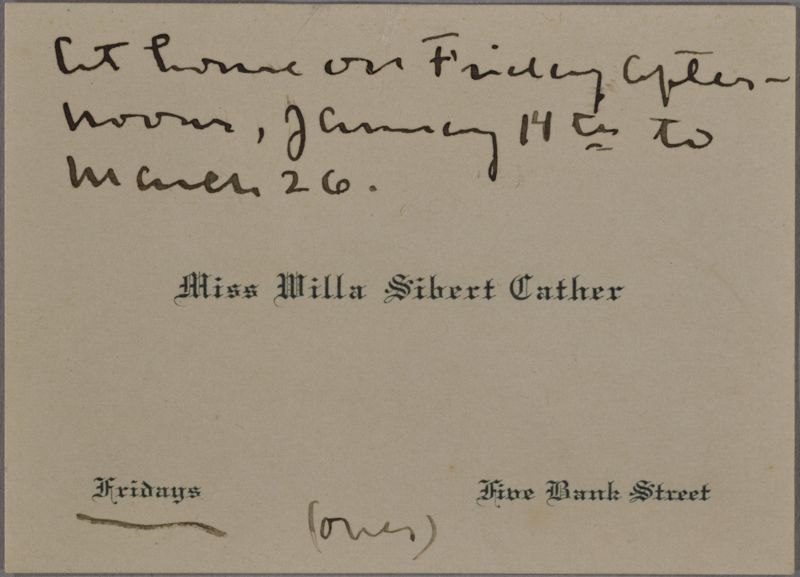 At home on Friday after-
noons, January 14th to
March 26.
Miss Willa Sibert Cather
Fridays
Five Bank Street